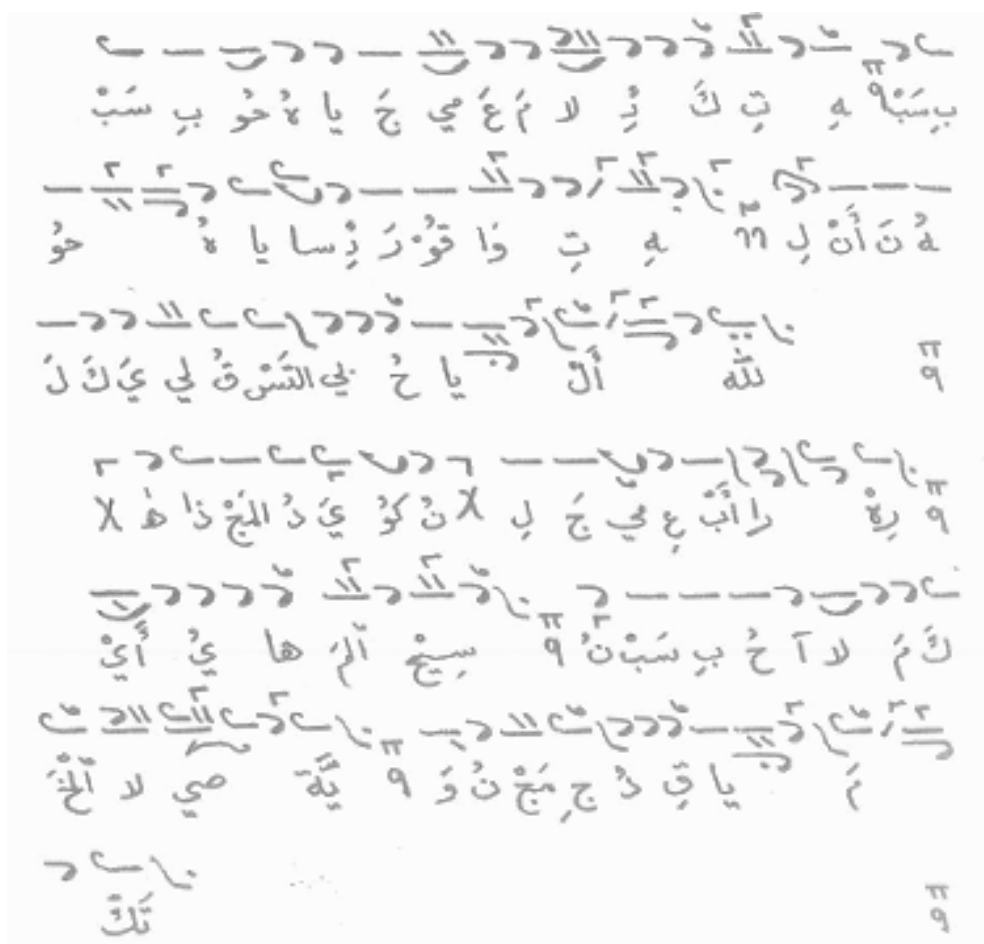 بِسَبْ هِ تِ كَ دِ لا مَ عَ مي جَ يا هُ حُو بِ سَبْ
هُ نَ أَنْ لِ هِ تِ وَا قُوْ رَ دِّسا يا هُ حُو
للّه أَلْ يا حُ بي التَسْ قُ لي يَ كَ لَ
رِهْ را أَبْ عِ مي جَ لِ X نُ كُوْ يَ دُ المَجْ ذا هَ X
كَ مَ لا آ حُ بِ سَبْ نُ سِيْحْ أَلمَ ها يُ أَيْ
مَ يا قِ دُ جِ مَجْ نُ وَ يَّةَ صي لا أَلخَ
تَكَ